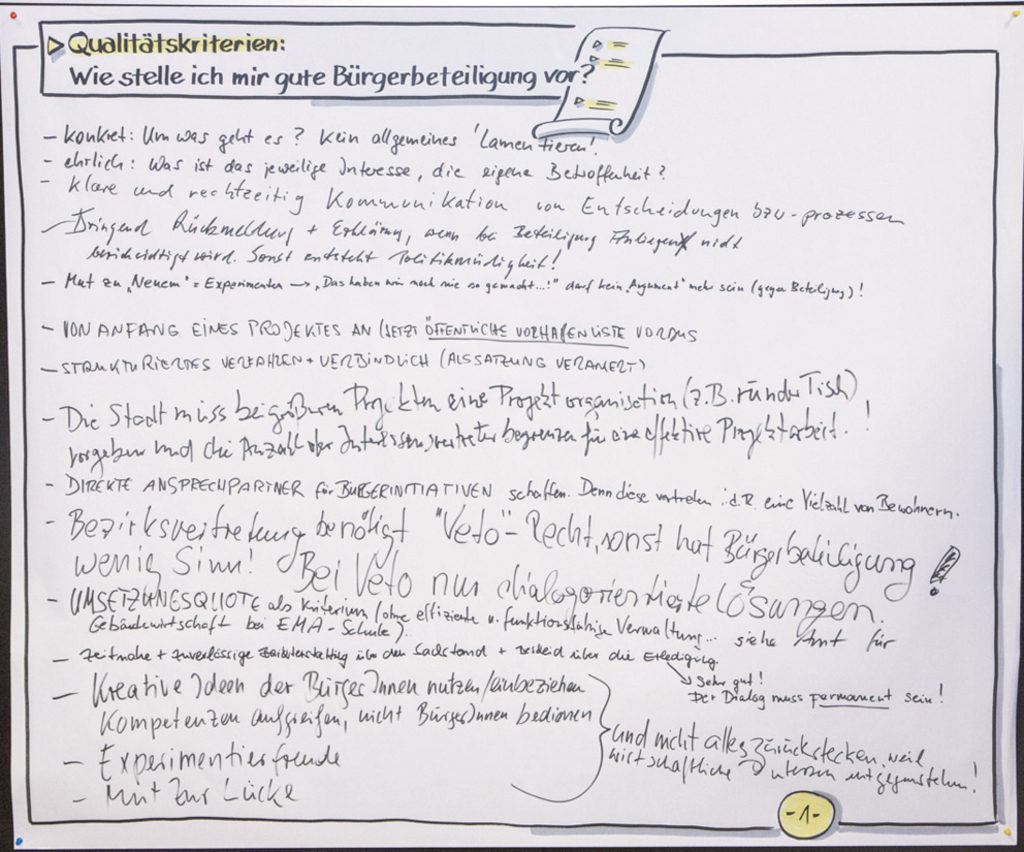 Qualitätskriterien:
Wie stelle ich mir gute Bürgerbeteiligung vor?
- konkret: Um was geht es? Kein allgemeines 'Lamentieren'.
- ehrlich: Was ist das jeweilige Interesse, die eigene Betroffenheit?
- klare und rechtzeitig Kommunikation von Entscheidungen bzw-prozessen
- Dringend Rückmeldung + Erklärung, wenn bei Beteiligung Anliegen nicht
berücksichtigt wird. Sonst entsteht Politikmüdigkeit!
- Mut zu "Neuem" = Experimenten → "Das haben wir noch nie so gemacht...!" darf kein "Argument" mehr sein (gegen Beteiligung)!
- VON ANFANG EINES PROJEKTES AN (SETZT ÖFFENTLICHE VORHABENLISTE VORAUS
- STRUKTURIERTES VERFAHREN + VERBINDLICH (ALS SATZUNG VERANKERT)
- Die Stadt muss bei größeren Projekten eine Projektorganisation (z.B. runder Tisch)
vorgeben und die Anzahl der Interessensvertreter begrenzen für eine effektive Projektarbeit.!
- DIREKTE ANSPRECHPARTNER für BÜRGERINITIATIVEN schaffen. Denn diese vertreten i.d.R. eine Vielzahl von Bewohnern.
- Bezirksvertretung benötigt "Veto"-Recht, sonst hat Bürgerbeteiligung
wenig Sinn! Bei Veto nur dialogorientierte Lösungen. !
- UMSETZUNGSQUOTE als Kriterium (ohne effiziente u. funktionsfähige Verwaltung... siehe Amt für
Gebäudewirtschaft bei EMA-Schule).
- zeitnahe + zuverlässige Berichterstattung über den Sachstand + Bescheid über die Erledigung
→ Sehr gut!
Der Dialog muss permanent sein!
- Kreative Ideen der BürgerInnen nutzen/einbeziehen
Kompetenzen aufgreifen, nicht BürgerInnen bedienen
und nicht alles zurückstecken, weil
wirtschaftliche Interessen entgegenstehen!
- Experimentierfreude
- Mut zur Lücke
-1-